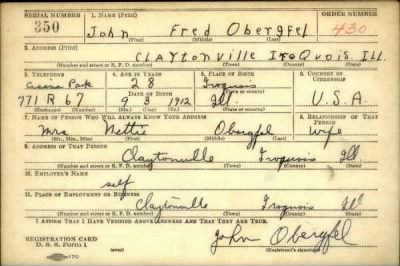 SERIAL NUMBER 1. NAME (Print) ORDER NUMBER
350 John Fred Obergfel 430
(First) (Middle) (Last)
2. ADDRESS (Print)
Claytonville Iroquois Ill.
(Number and street or R. F. D. number) (Town) (County) (State)
3. TELEPHONE 4. AGE IN YEARS 5. PLACE OF BIRTH 6. COUNTRY OF CITIZENSHIP
Cissna Park 28 Iroquois
DATE OF BIRTH (Town or county)
771 R 67 9 3 1912 Ill. U.S.A.
(Exchange) (Number) (Mo.) (Day) (Yr.) (State or country)
7. NAME OF PERSON WHO WILL ALWAYS KNOW YOUR ADDRESS 8. RELATIONSHIP OF THAT PERSON
Mrs Nettie Obergfel wife
(Mr., Mrs., Miss) (First) (Middle) (Last)
9. ADDRESS OF THAT PERSON
Claytonville Iroquois Ill
(Number and street or R. F. D. number) (Town) (County) (State)
10. EMPLOYER'S NAME
self
11. PLACE OF EMPLOYMENT OR BUSINESS
Claytonville Iroquois Ill
(Number and street or R. F. D. number) (Town) (County) (State)
I AFFIRM THAT I HAVE VERIFIED ABOVE ANSWERS AND THAT THEY ARE TRUE.
REGISTRATION CARD John Obergfel
D. S. S. Form 1 (Registrant's signature)